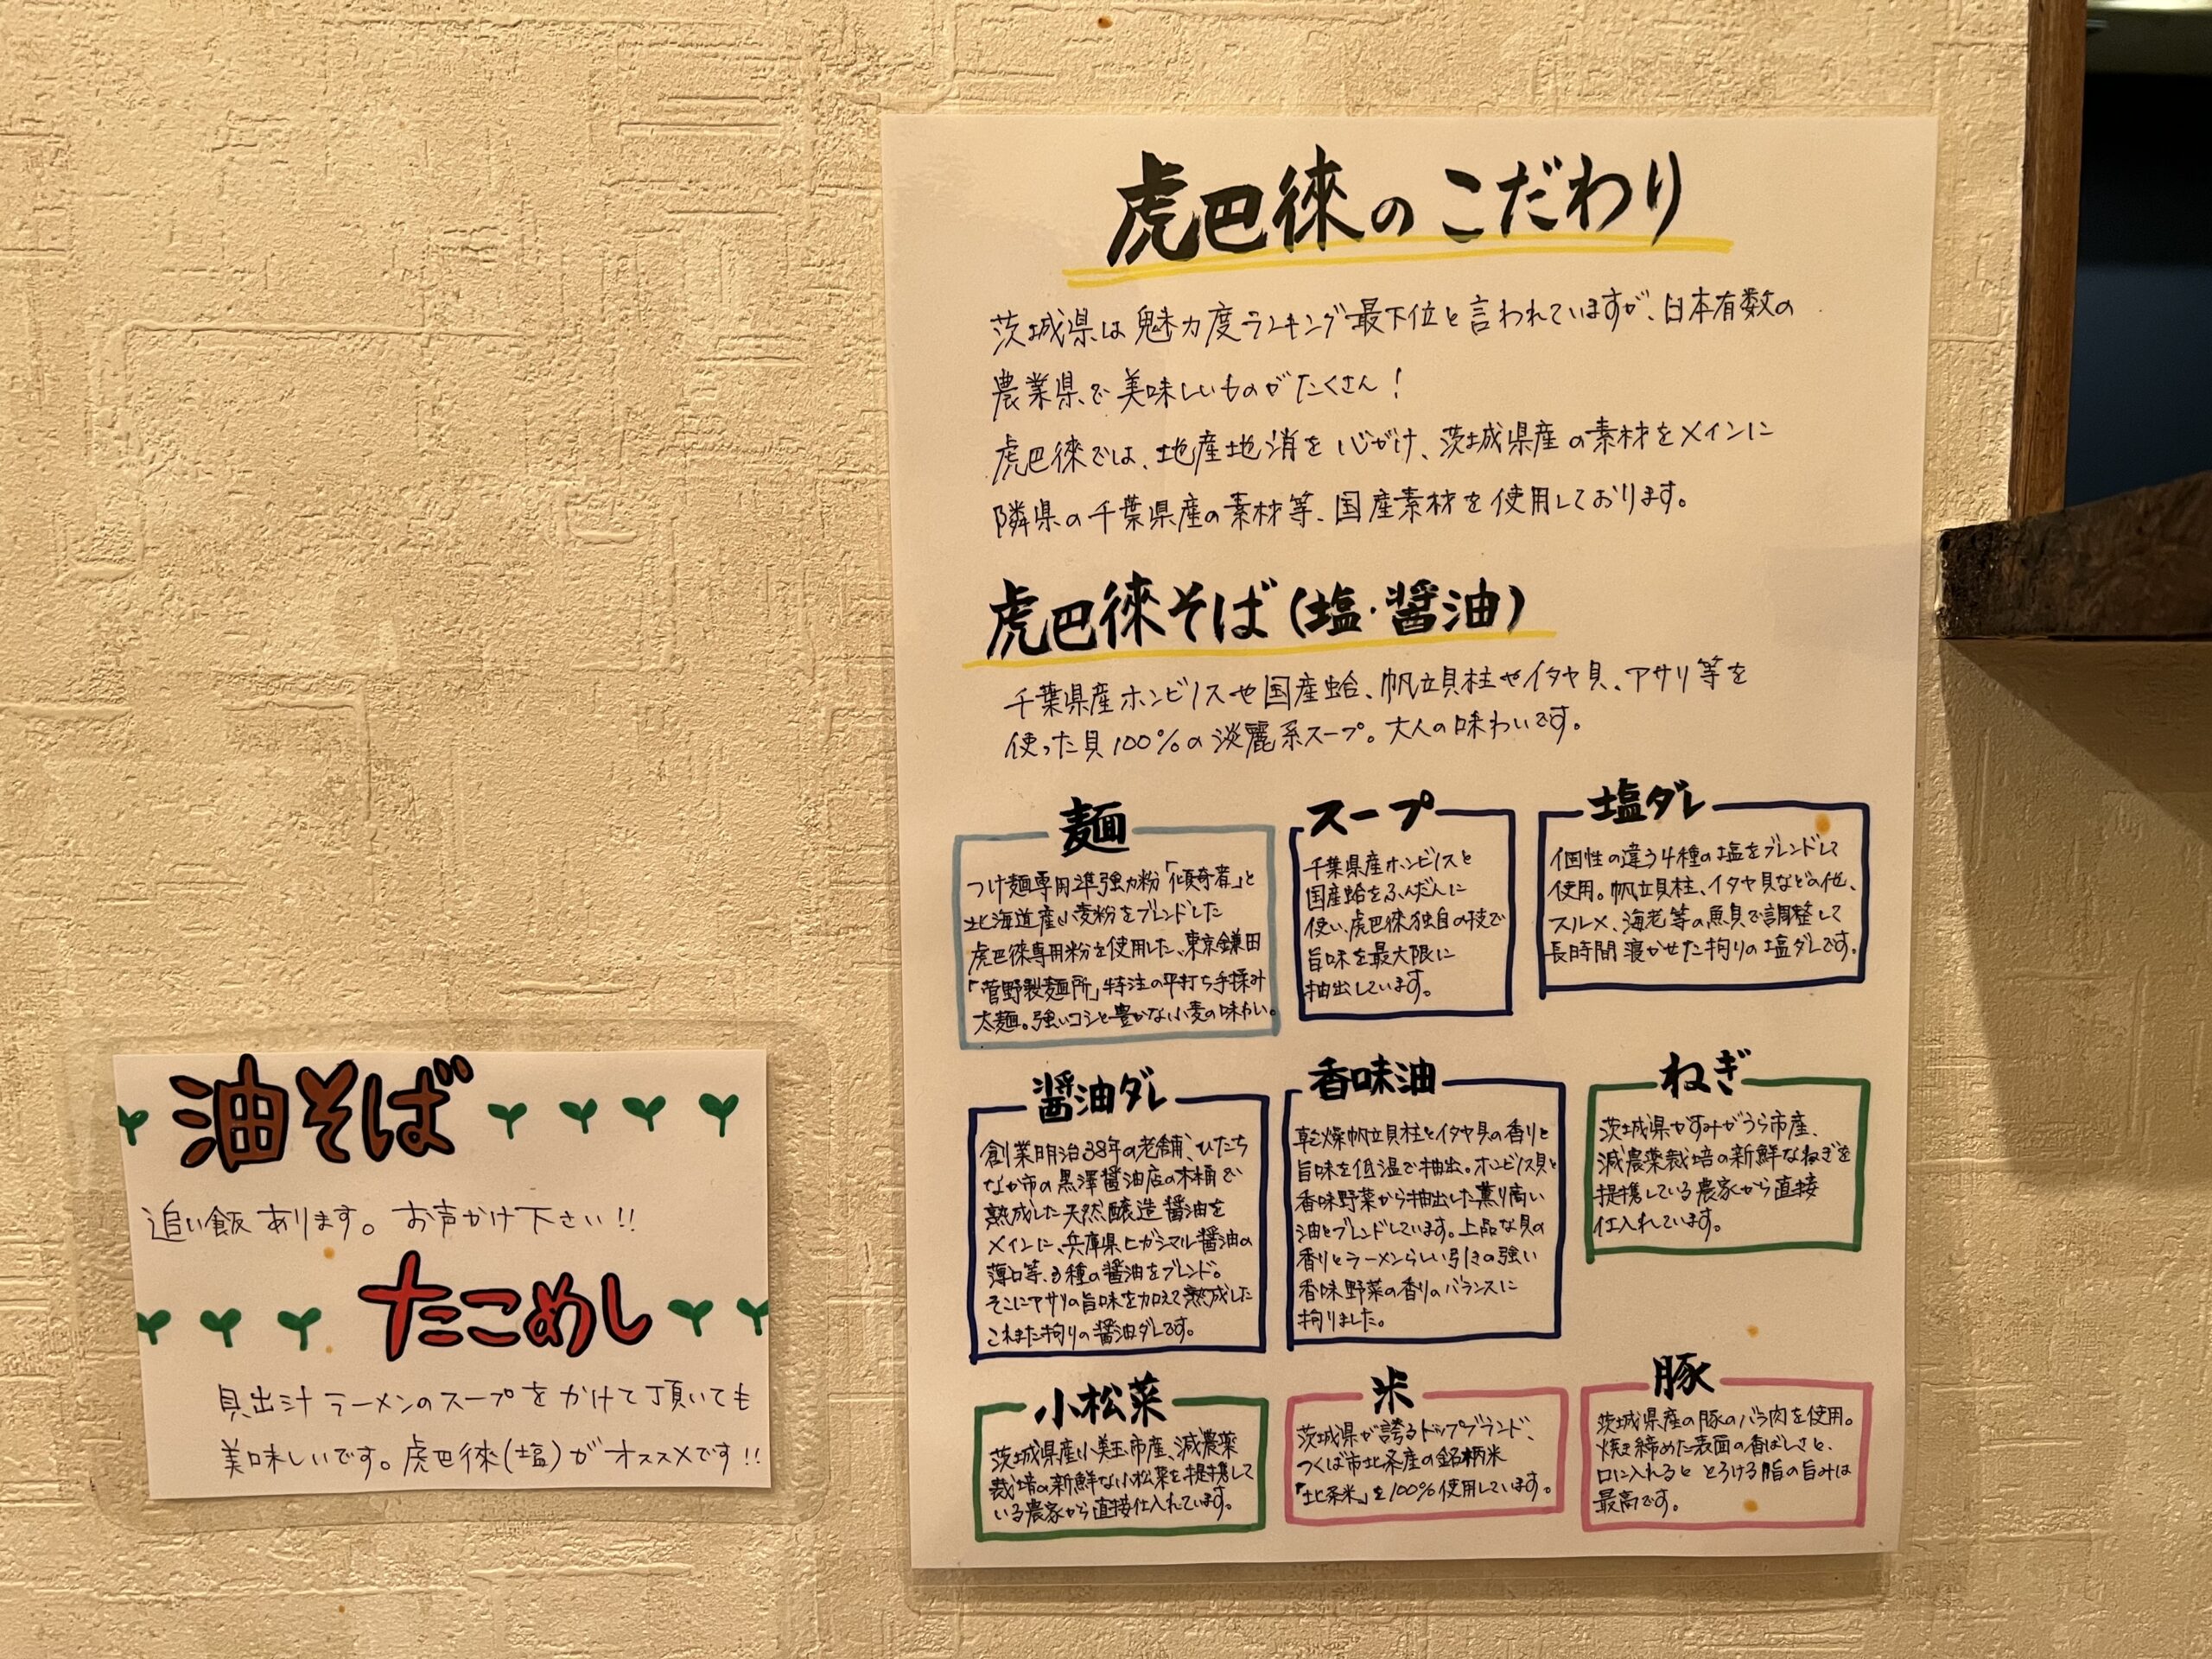 虎巴徠のこだわり
茨城県は魅力度ランキング最下位と言われていますが、日本有数の
農業県で美味しいものがたくさん!
虎巴徠では、地産地消を心がけ、茨城県産の素材をメインに
隣県の千葉県産の素材等、国産素材を使用しております。
虎巴徠そば(塩・醤油)
千葉県産ホンビノスや国産蛤、帆立貝柱やイタヤ貝、アサリ等を
使った貝100%の淡麗系スープ。大人の味わいです。
麺
つけ麺専用準強力粉「傾奇者」と
北海道産小麦粉をブレンドした
虎巴徠専用粉を使用した、東京鎌田
「菅野製麺所」特注の平打ち手揉み
太麺。強いコシと豊かな小麦の味わい。
スープ
千葉県産ホンビノスと
国産蛤をふんだんに
使い、虎巴徠独自の技で
旨味を最大限に
抽出しています。
塩ダレ
個性の違う4種の塩をブレンドして
使用。帆立貝柱、イタヤ貝などの他、
スルメ、海老等の魚貝で調整して
長時間寝かせた拘りの塩ダレです。
醤油ダレ
創業明治38年の老舗、ひたち
なか市の黒澤醤油店の木桶で
熟成した天然醸造醤油を
メインに、兵庫県ヒガシマル醤油の
薄口等、3種の醤油をブレンド。
そこにアサリの旨味を加えて熟成した
これまた拘りの醤油ダレです。
香味油
乾燥帆立貝柱とイタヤ貝の香りと
旨味を低温で抽出。ホンビノス貝と
香味野菜から抽出した薫り高い
油とブレンドしています。上品な貝の
香りとラーメンらしい引きの強い
香味野菜の香りのバランスに
拘りました。
ねぎ
茨城県かすみがうら市産、
減農薬栽培の新鮮なねぎを
提携している農家から直接
仕入れています。
小松菜
茨城県産小美玉市産、減農薬
栽培の新鮮な小松菜を提携して
いる農家から直接仕入れています。
米
茨城県が誇るトップブランド、
つくば市北条産の銘柄米
「北条米」を100%使用しています。
豚
茨城県産の豚のバラ肉を使用。
焼き締めた表面の香ばしさと、
口に入れると とろける脂の旨みは
最高です。
油そば
追い飯あります。お声かけ下さい!!
たこめし
貝出汁ラーメンのスープをかけて頂いても
美味しいです。虎巴徠(塩)がオススメです!!